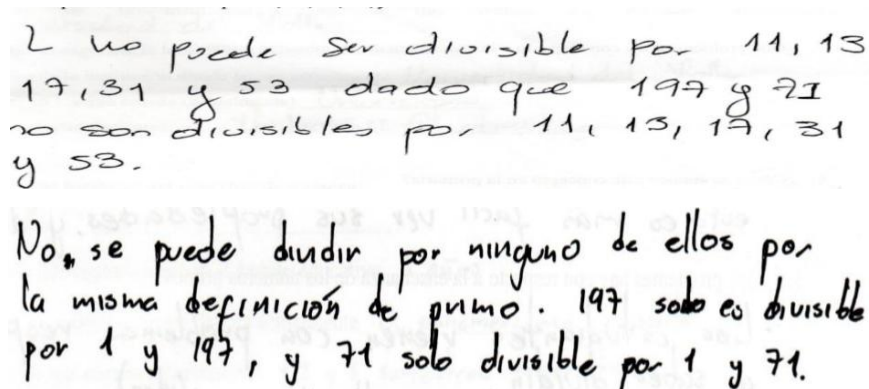 L no puede ser divisible por 11, 13
17, 31 y 53 dado que 197 y 71
no son divisibles por 11, 13, 17, 31
y 53.
No, se puede dividir por ninguno de ellos por
la misma definición de primo. 197 solo es divisible
por 1 y 197, y 71 solo divisible por 1 y 71.